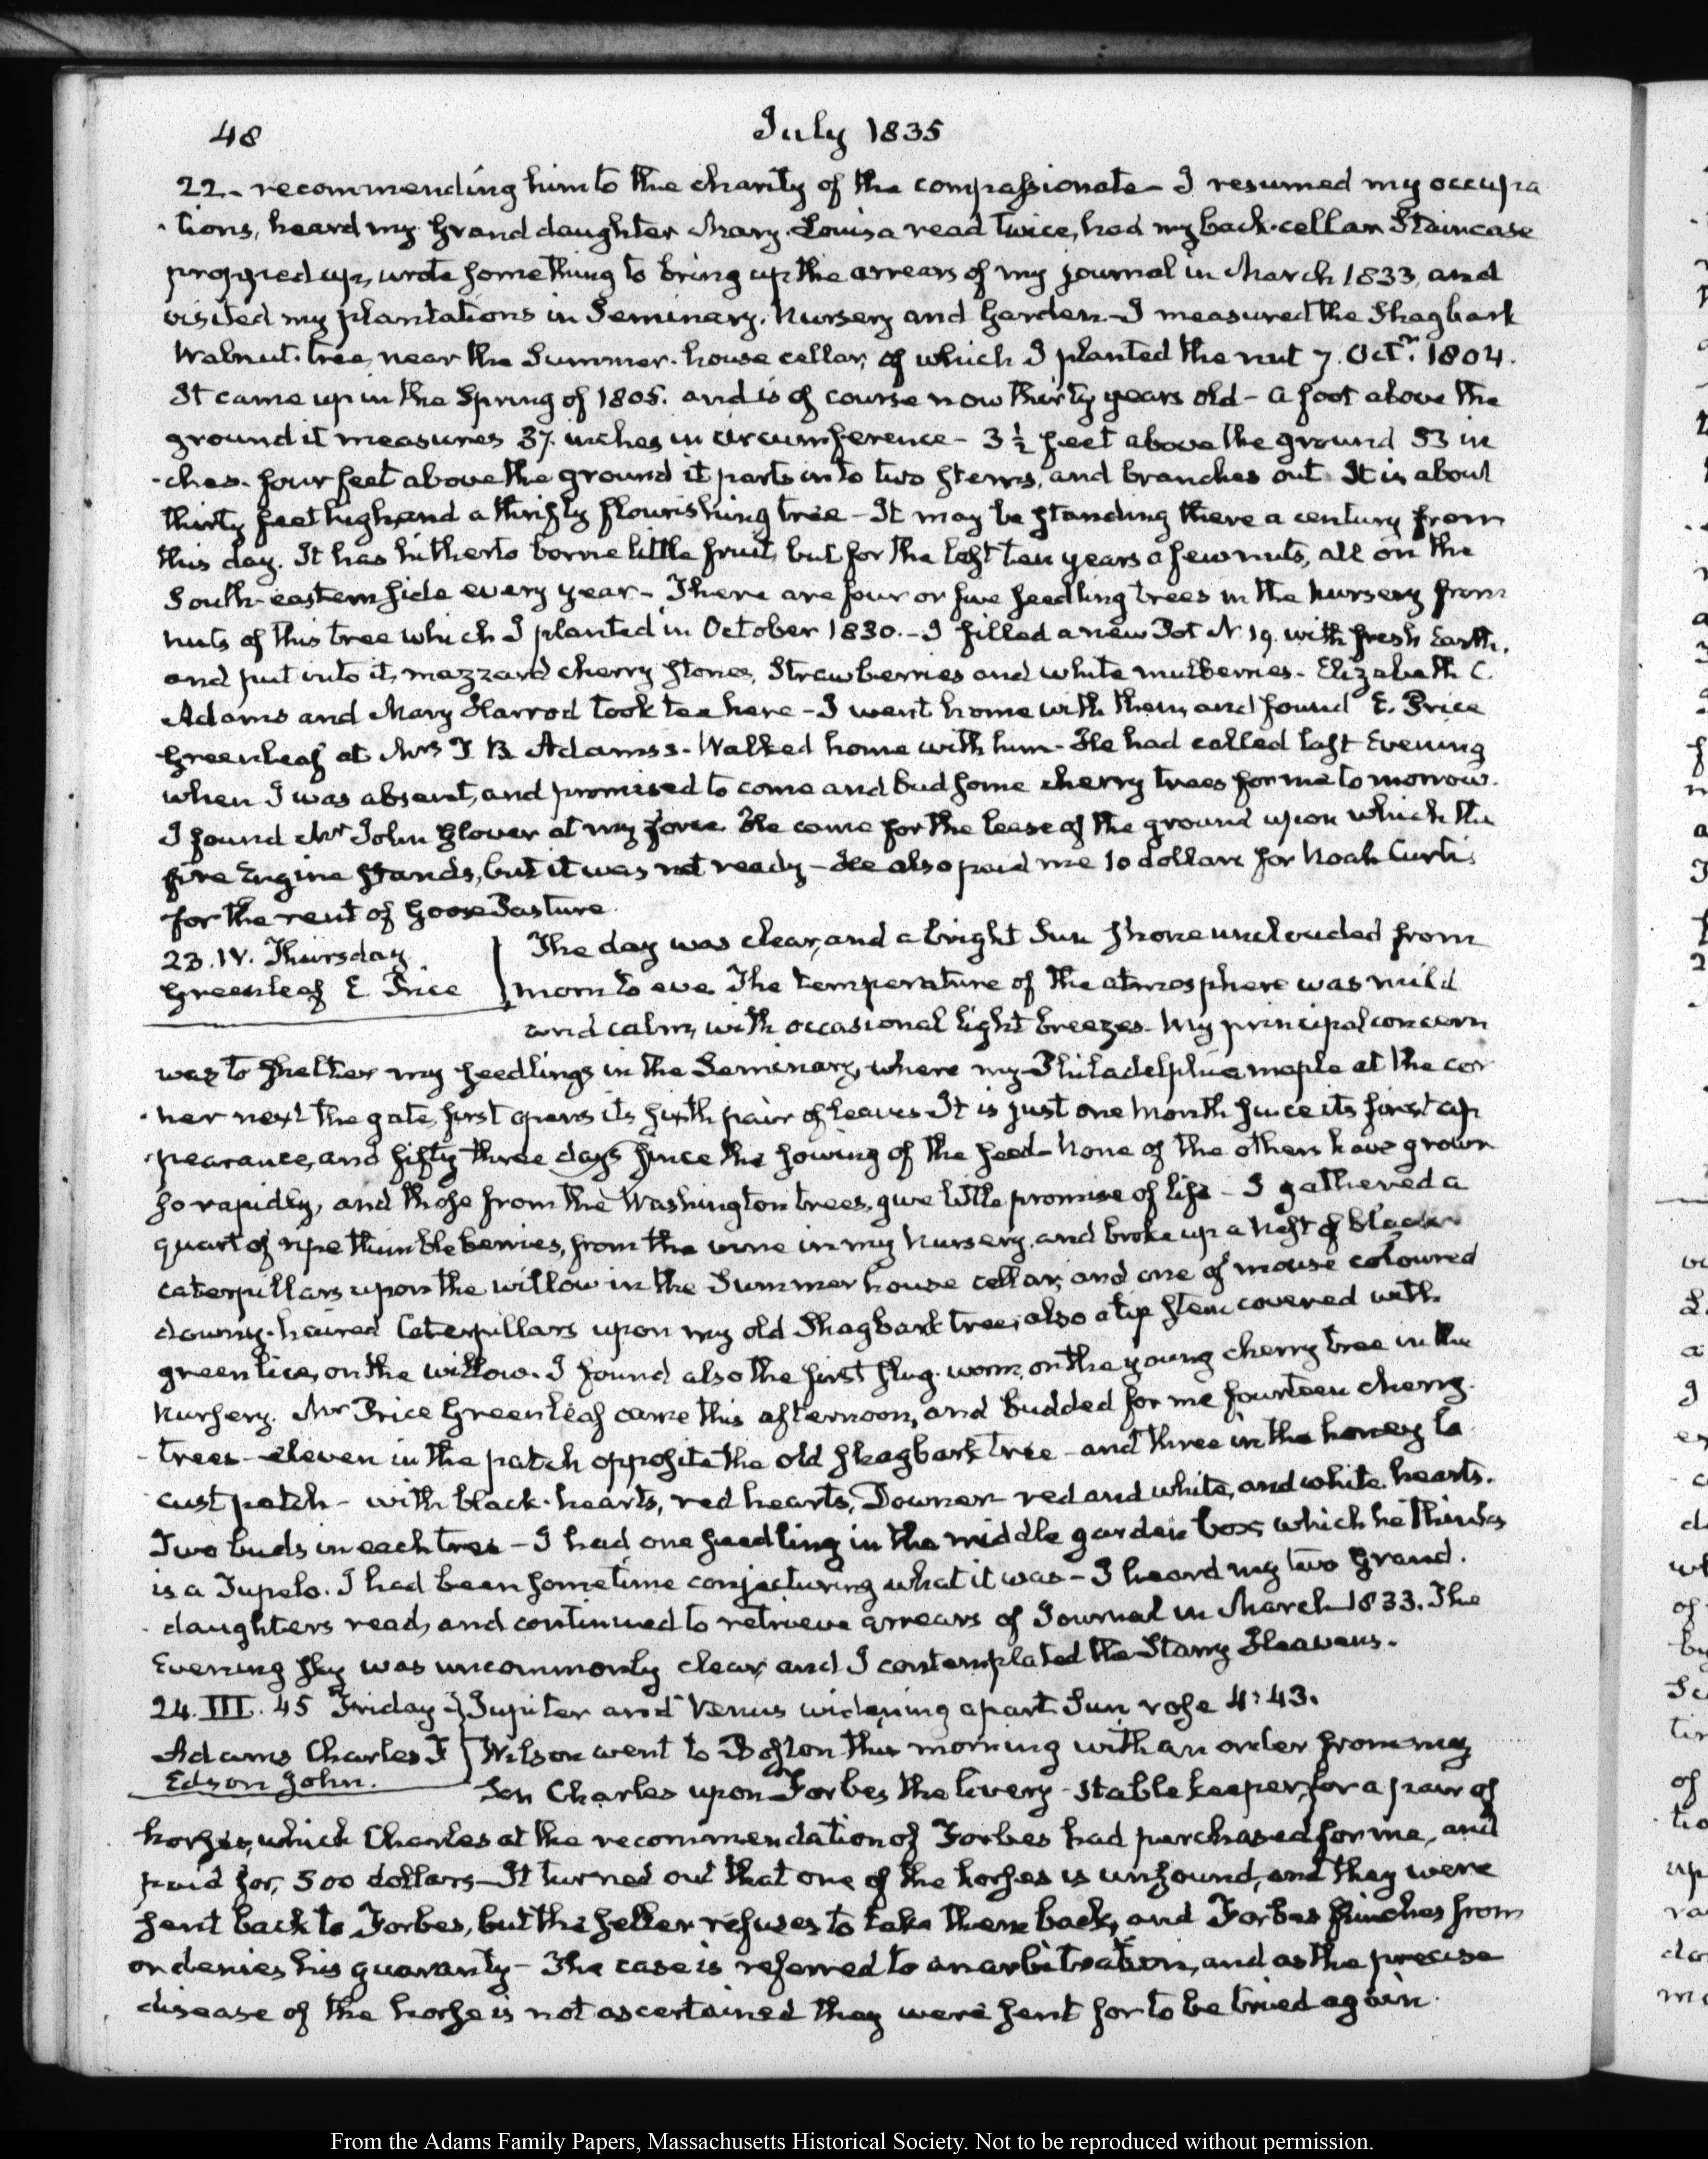 48
July 1835
22- recommending him to the charity of the compassionate - I resumed my occupa
-tions, heard my Grand daughter Mary-Louisa read twice, had my back-cellar Staircase
propped up, wrote something to bring up the arrears of my journal in March 1833, and
visited my plantations in Seminary, Nursery and Garden - I measured the Shagbark
Walnut-tree, near the Summer-house cellar, of which I planted the nut 7. Octr. 1804.
It came up in the Spring of 1805. and is of course now thirty years old - a foot above the
ground it measures 37. inches in circumference - 3½ feet above the ground 33 in
-ches. four feet above the ground it parts into two stems, and branches out. It is about
thirty feet high, and a thrifty flourishing tree - It may be standing there a century from
this day. It has hitherto borne little fruit, but for the last ten years a few nuts, all on the
South-eastern side every year - There are four or five seedling trees in the Nursery from
nuts of this tree which I planted in October 1830. - I filled a new Pot N. 19. with fresh Earth,
and put into it, mazzard cherry stones, Strawberries and white mulberries - Elizabeth C.
Adams and Mary Harrod took tea here - I went home with them, and found E. Price
Greenleaf at Mrs T B Adams's - Walked home with him - He had called last Evening
when I was absent, and promised to come and bud some cherry trees for me to morrow.
I found Mr John Glover at my House. He came for the lease of the ground upon which the
fire Engine stands, but it was not ready - He also paid me 10 dollars for Noah Curtis
for the rent of Goose Pasture
23. IV. Thursday
Greenleaf E Price
The day was clear, and a bright Sun shone unclouded from
morn to eve. The temperature of the atmosphere was mild
and calm, with occasional light breezes - My principal concern
was to shelter my seedlings in the Seminary, where my Philadelphia maple at the cor
-ner next the gate, first opens its sixth pair of leaves It is just one Month since its first ap
-pearance, and fifty three days since the sowing of the seed - None of the others have grown
so rapidly, and those from the Washington trees, give little promise of life - I gathered a
quart of ripe thimble berries, from the vine in my Nursery, and broke up a nest of black
caterpillars upon the willow in the Summer house cellar, and one of mouse coloured
downy-haired Caterpillars upon my old Shagbark tree; also a tip stem covered with
green lice, on the willow. I found also the first slug-worm, on the young cherry tree in the
Nursery. Mr Price Greenleaf came this afternoon, and budded for me fourteen cherry-
-trees - eleven in the patch opposite the old shagbark tree - and three in the honey lo
-cust patch - with black-hearts, red hearts, Downer red and white, and white hearts.
Two buds in each tree - I had one seedling in the middle garden box, which he thinks
is a Tupelo. I had been sometime conjecturing what it was - I heard my two Grand-
-daughters read, and continued to retrieve arrears of Journal in March 1833. The
Evening sky was uncommonly clear, and I contemplated the Starry Heavens.
24. III. 45 Friday
Adams Charles F
Edson John.
Jupiter and Venus widening apart. Sun rose 4:43.
Wilson went to Boston this morning with an order from my
Son Charles upon Forbes the livery-stable keeper, for a pair of
horses, which Charles at the recommendation of Forbes had purchased for me, and
paid for, 300 dollars - It turned out that one of the horses is unsound, and they were
sent back to Forbes, but the seller refuses to take them back, and Forbes flinches from
or denies his guaranty - The case is referred to an arbitration, and as the precise
disease of the horse is not ascertained they were sent for to be tried again.
From the Adams Family Papers, Massachusetts Historical Society. Not to be reproduced without permission.